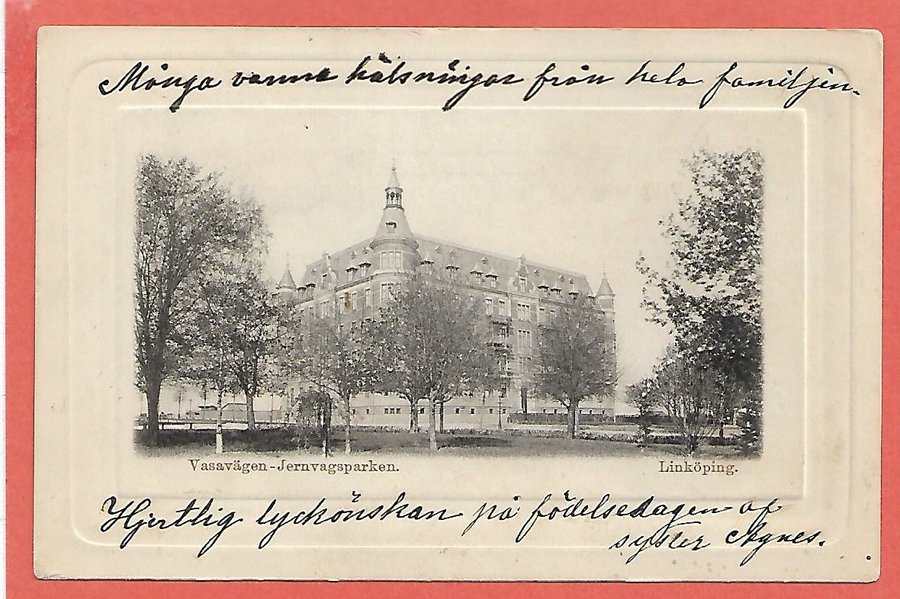 Många varma hälsningar från hela familjen.
Vasavägen-Jernvagsparken. Linköping.
Hjertlig lyckönskan på födelsedagen af
syster Agnes.